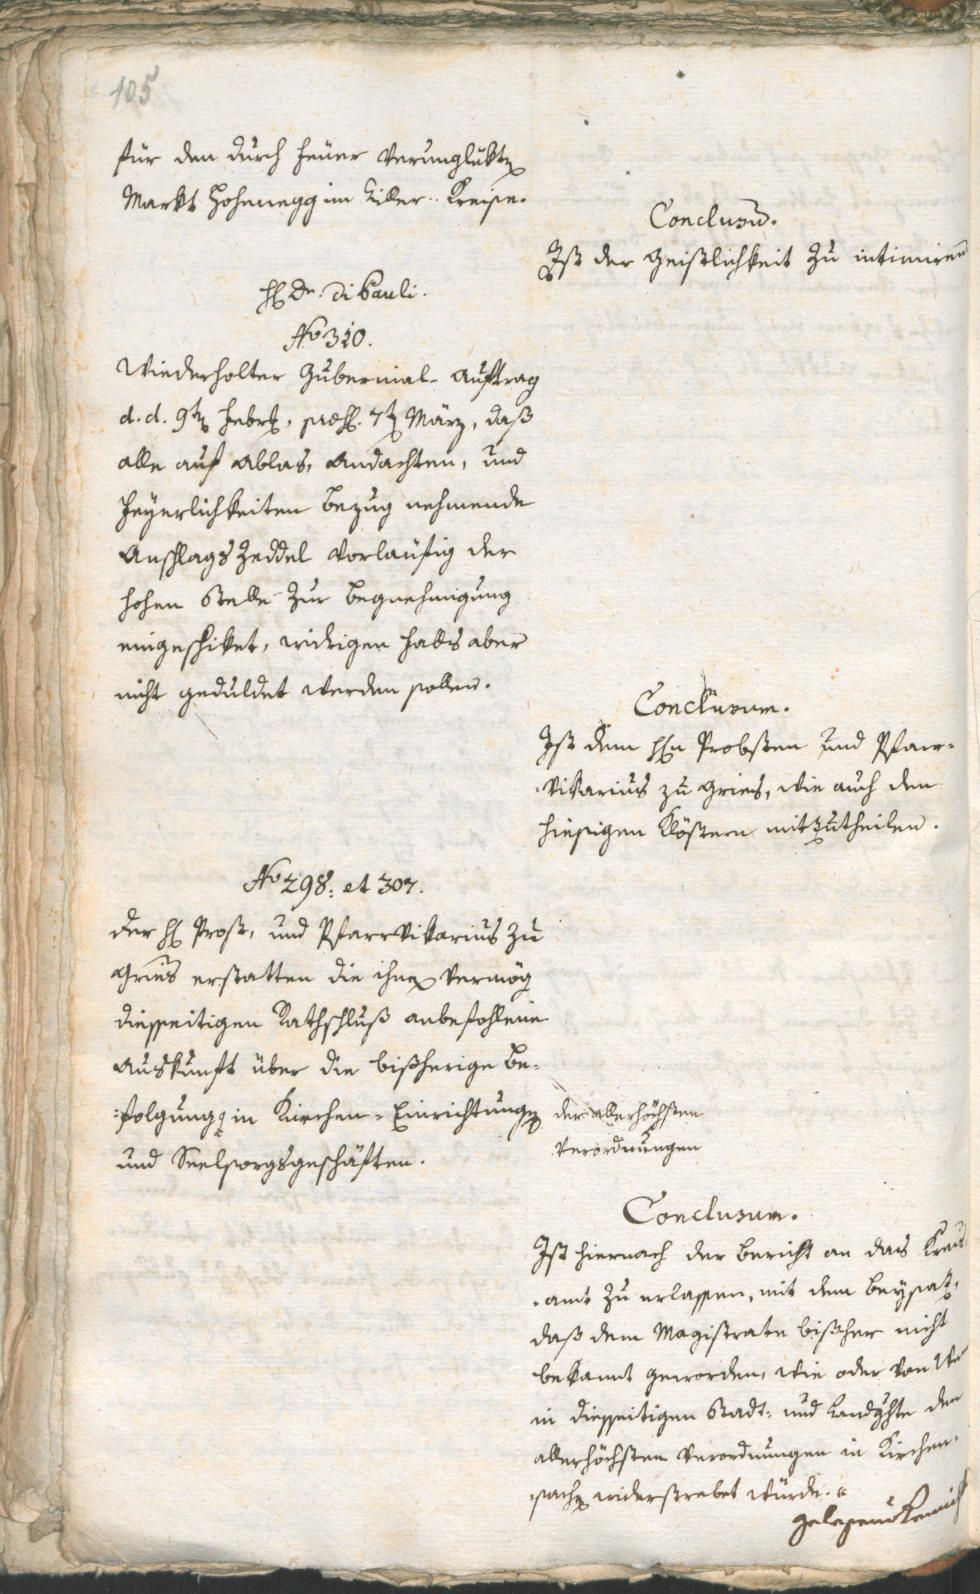 105
für den durch Feüer verunglükten
Markt Hohenegg im Ziller-Kreise.
Conclusum.
Ist der Geistlichkeit zu intimiren
H. Dr. di Pauli.
No 310.
Wiederholter Gubernial-Auftrag
d. d. 9ten Febr., 7ten März, daß
alle auf Ablas, Andachten, und
Feyerlichkeiten Bezug nehmende
Anschlags Zeddel vorläufig der
hohen Stelle zur Begnehmigung
eingeschiket, widrigen Falls aber
nicht geduldet werden sollen.
Conclusum.
Ist dem Hn Probsten und Pfarr-
Vikarius zu Gries, wie auch den
hiesigen Klöstern mitzutheilen.
No 298. et 307.
Der H. Probst, und Pfarrvikarius zu
Gries erstatten die ihnen vermög
diesseitigen Rathschluß anbefohlene
Auskunft über die bißherige Be-
folgung in Kirchen-Einrichtungen
der allerhöchsten
Verordnungen
und Seelsorgsgeschäften.
Conclusum.
Ist hiernach der Bericht an das Kreis
amt zu erlassen, mit dem Beysatz,
daß dem Magistrate bißher nicht
bekannt geworden, wie oder von
in diesseitigen Stadt- und Landgchte den
allerhöchsten Verordnungen in Kirchen-
sachen widerstrebet würde.